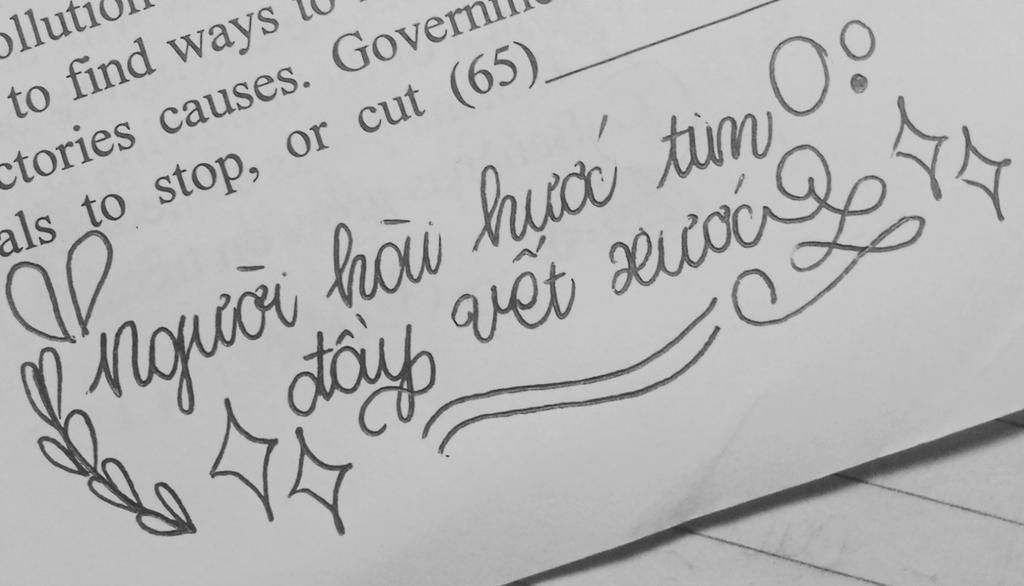 ollution
to find ways to
ctories causes. Governme
als to stop, or cut (65)
Người hài hước tim
đầy vết xước